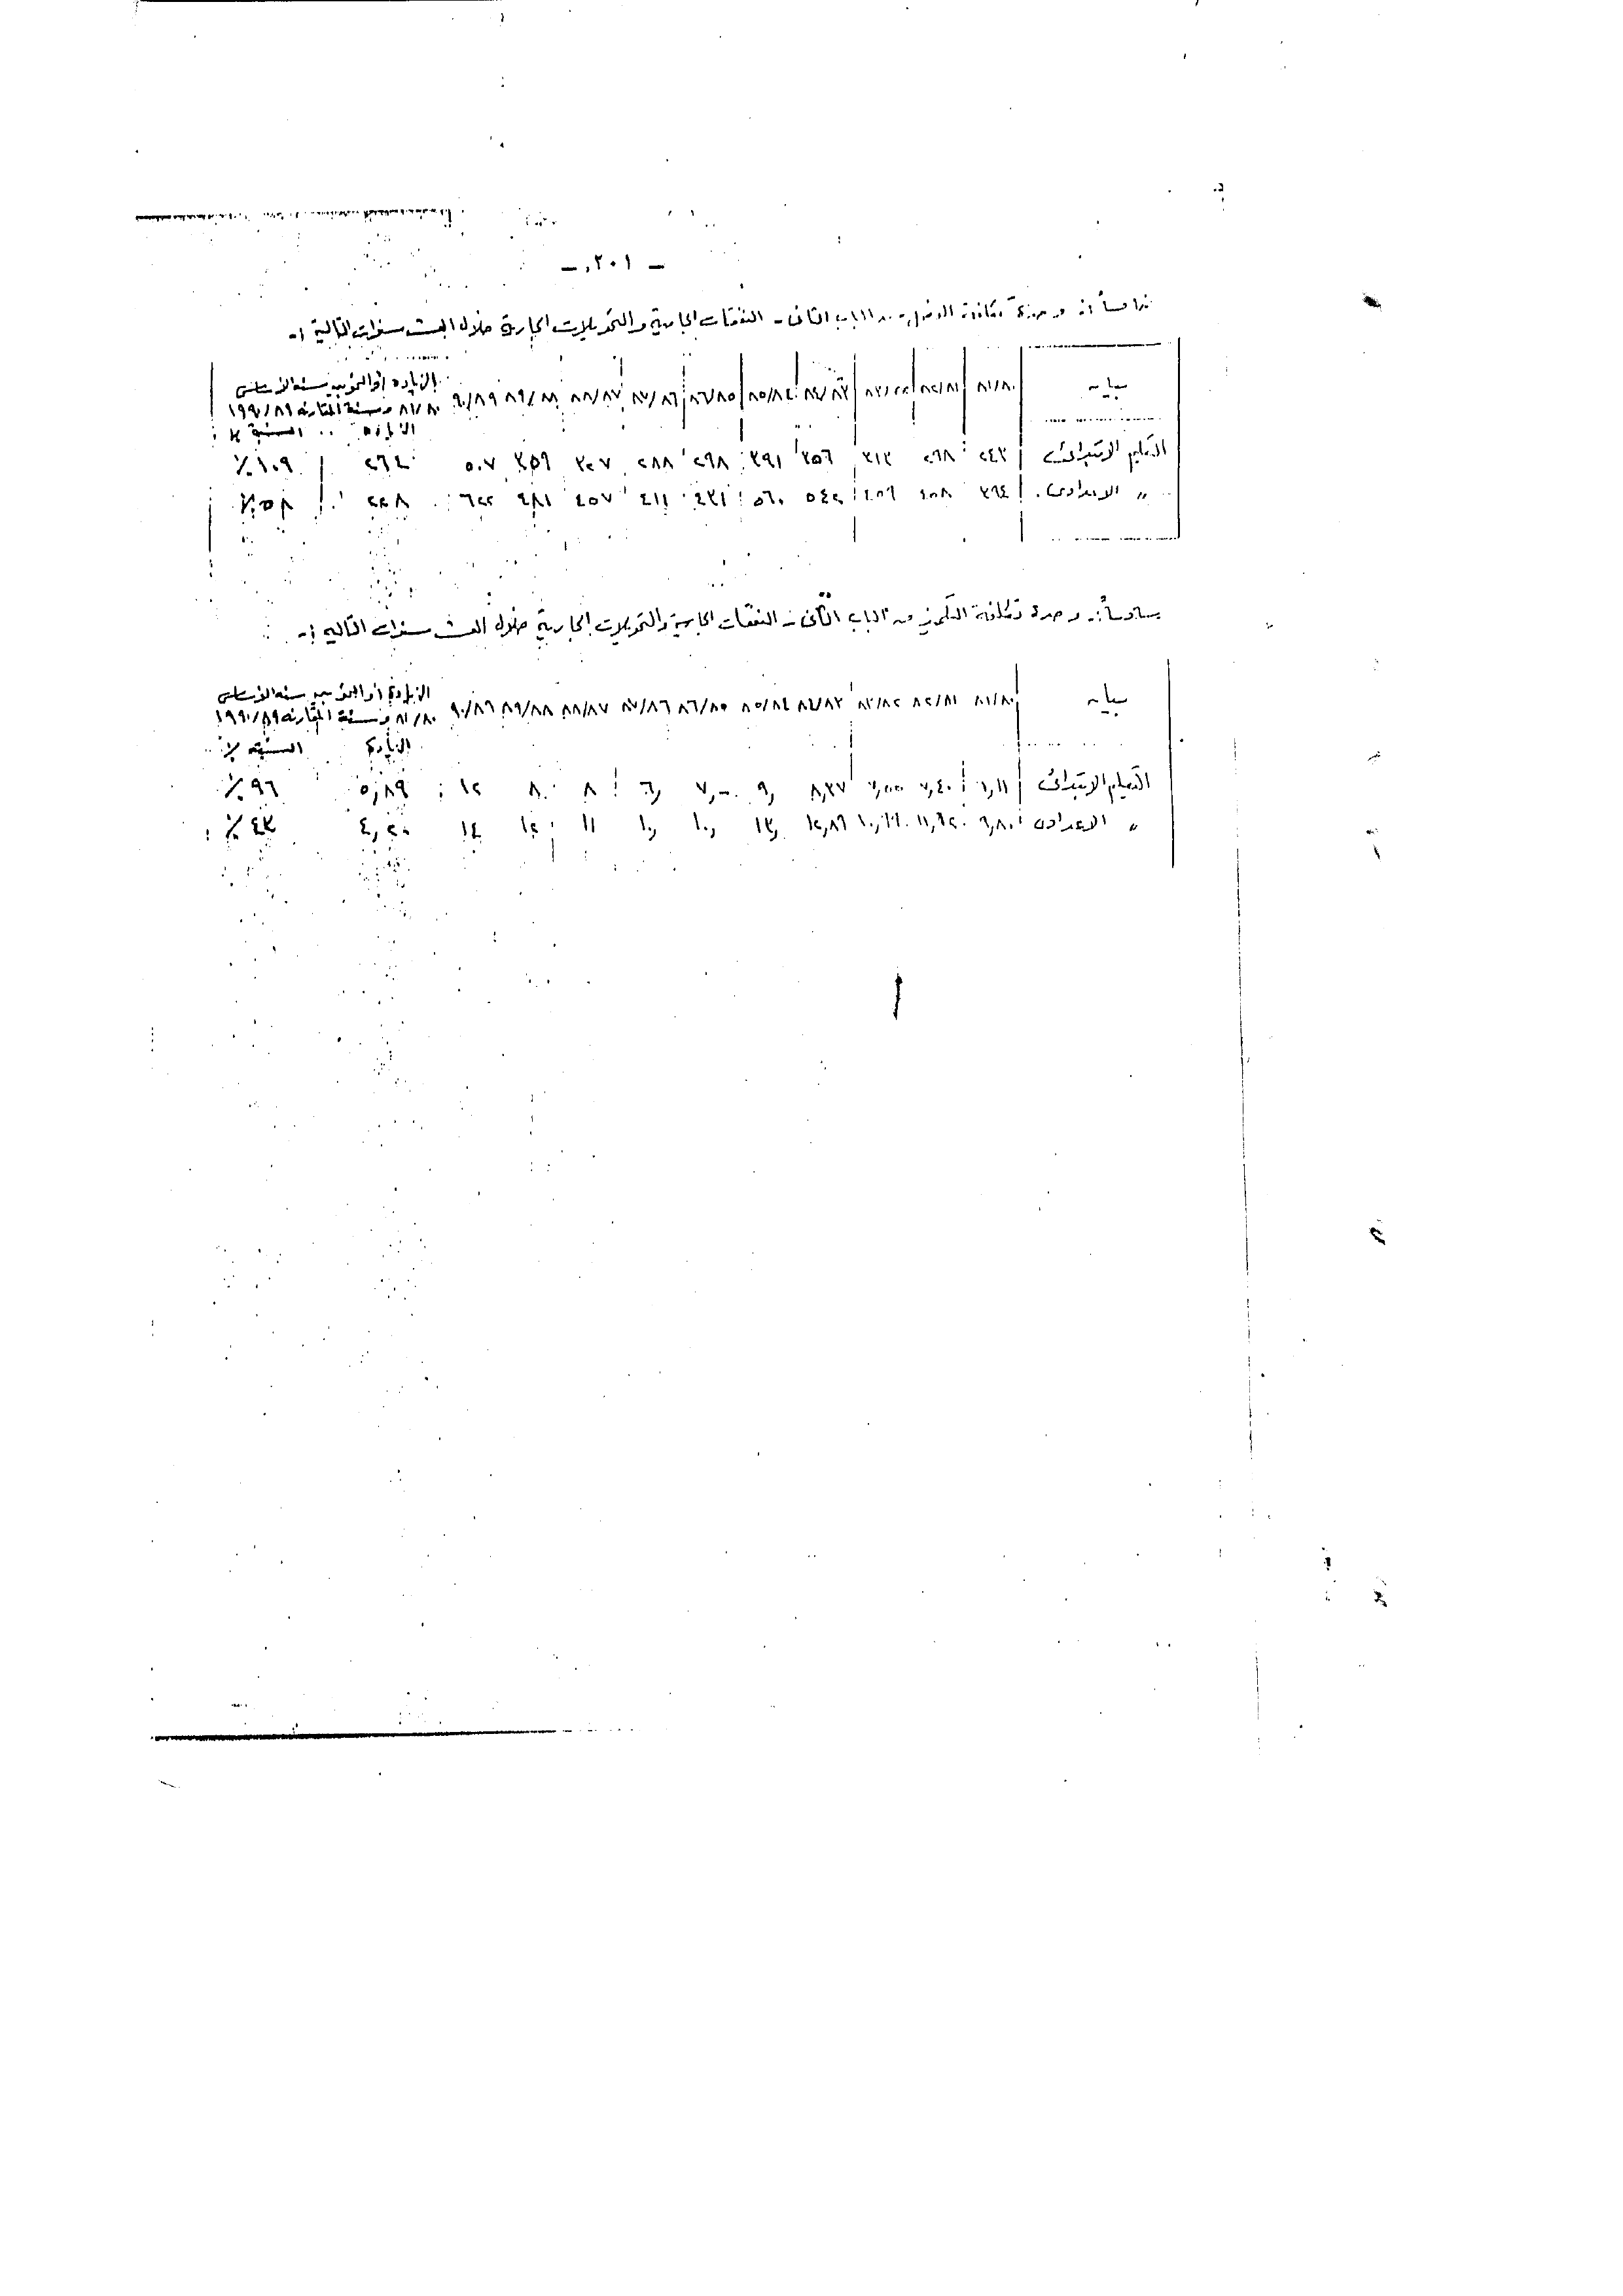 - ٢٠١ -
خامساً :- وحدة تكلفة الفصل من الباب الثانى - النفقات الجارية والتحويلات الجارية خلال العشر سنوات التالية :-
بيان ٨١/٨٠ ٨٢/٨١ ٨٣/٨٢ ٨٤/٨٣ ٨٥/٨٤ ٨٦/٨٥ ٨٧/٨٦ ٨٨/٨٧ ٨٩/٨٨ ٩٠/٨٩ الزيادة أو العجز بين سنة الأساس
٨١/٨٠ وسنة المقارنة ١٩٩٠/٨٩
الزيادة النسبة ٪
التعليم الابتدائى ٢٤٣ ٢٦٨ ٣١٣ ٣٥٦ ٣٩١ ٢٩٨ ٢٨٨ ٣٠٧ ٣٥٩ ٥٠٧ ٢٦٤ ١٠٩٪
" الاعدادى ٣٩٤ ٤٥٨ ٤٥٦ ٥٤٢ ٥٦٠ ٤٣١ ٤١١ ٤٥٧ ٤٨١ ٦٢٢ ٢٢٨ ٥٨٪
سادساً :- وحدة تكلفة التلميذ من الباب الثانى - النفقات الجارية والتحويلات الجارية خلال العشر سنوات التالية :-
بيان ٨١/٨٠ ٨٢/٨١ ٨٣/٨٢ ٨٤/٨٣ ٨٥/٨٤ ٨٦/٨٥ ٨٧/٨٦ ٨٨/٨٧ ٨٩/٨٨ ٩٠/٨٩ الزيادة أو العجز بين سنة الأساس
٨١/٨٠ وسنة المقارنة ١٩٩٠/٨٩
الزيادة النسبة ٪
التعليم الابتدائى ٦,١١ ٧,٤٠ ٨,٣٧ ٩, ٧,٠٠ ٦, ٨ ٨ ١٢ ٥,٨٩ ٩٦٪
" الاعدادى ٩,٨٠ ١١,٦٢٠ ١٢,٨٦ ١٣, ١٠, ١٠, ١١ ١٢ ١٤ ٤,٢٠ ٤٣٪